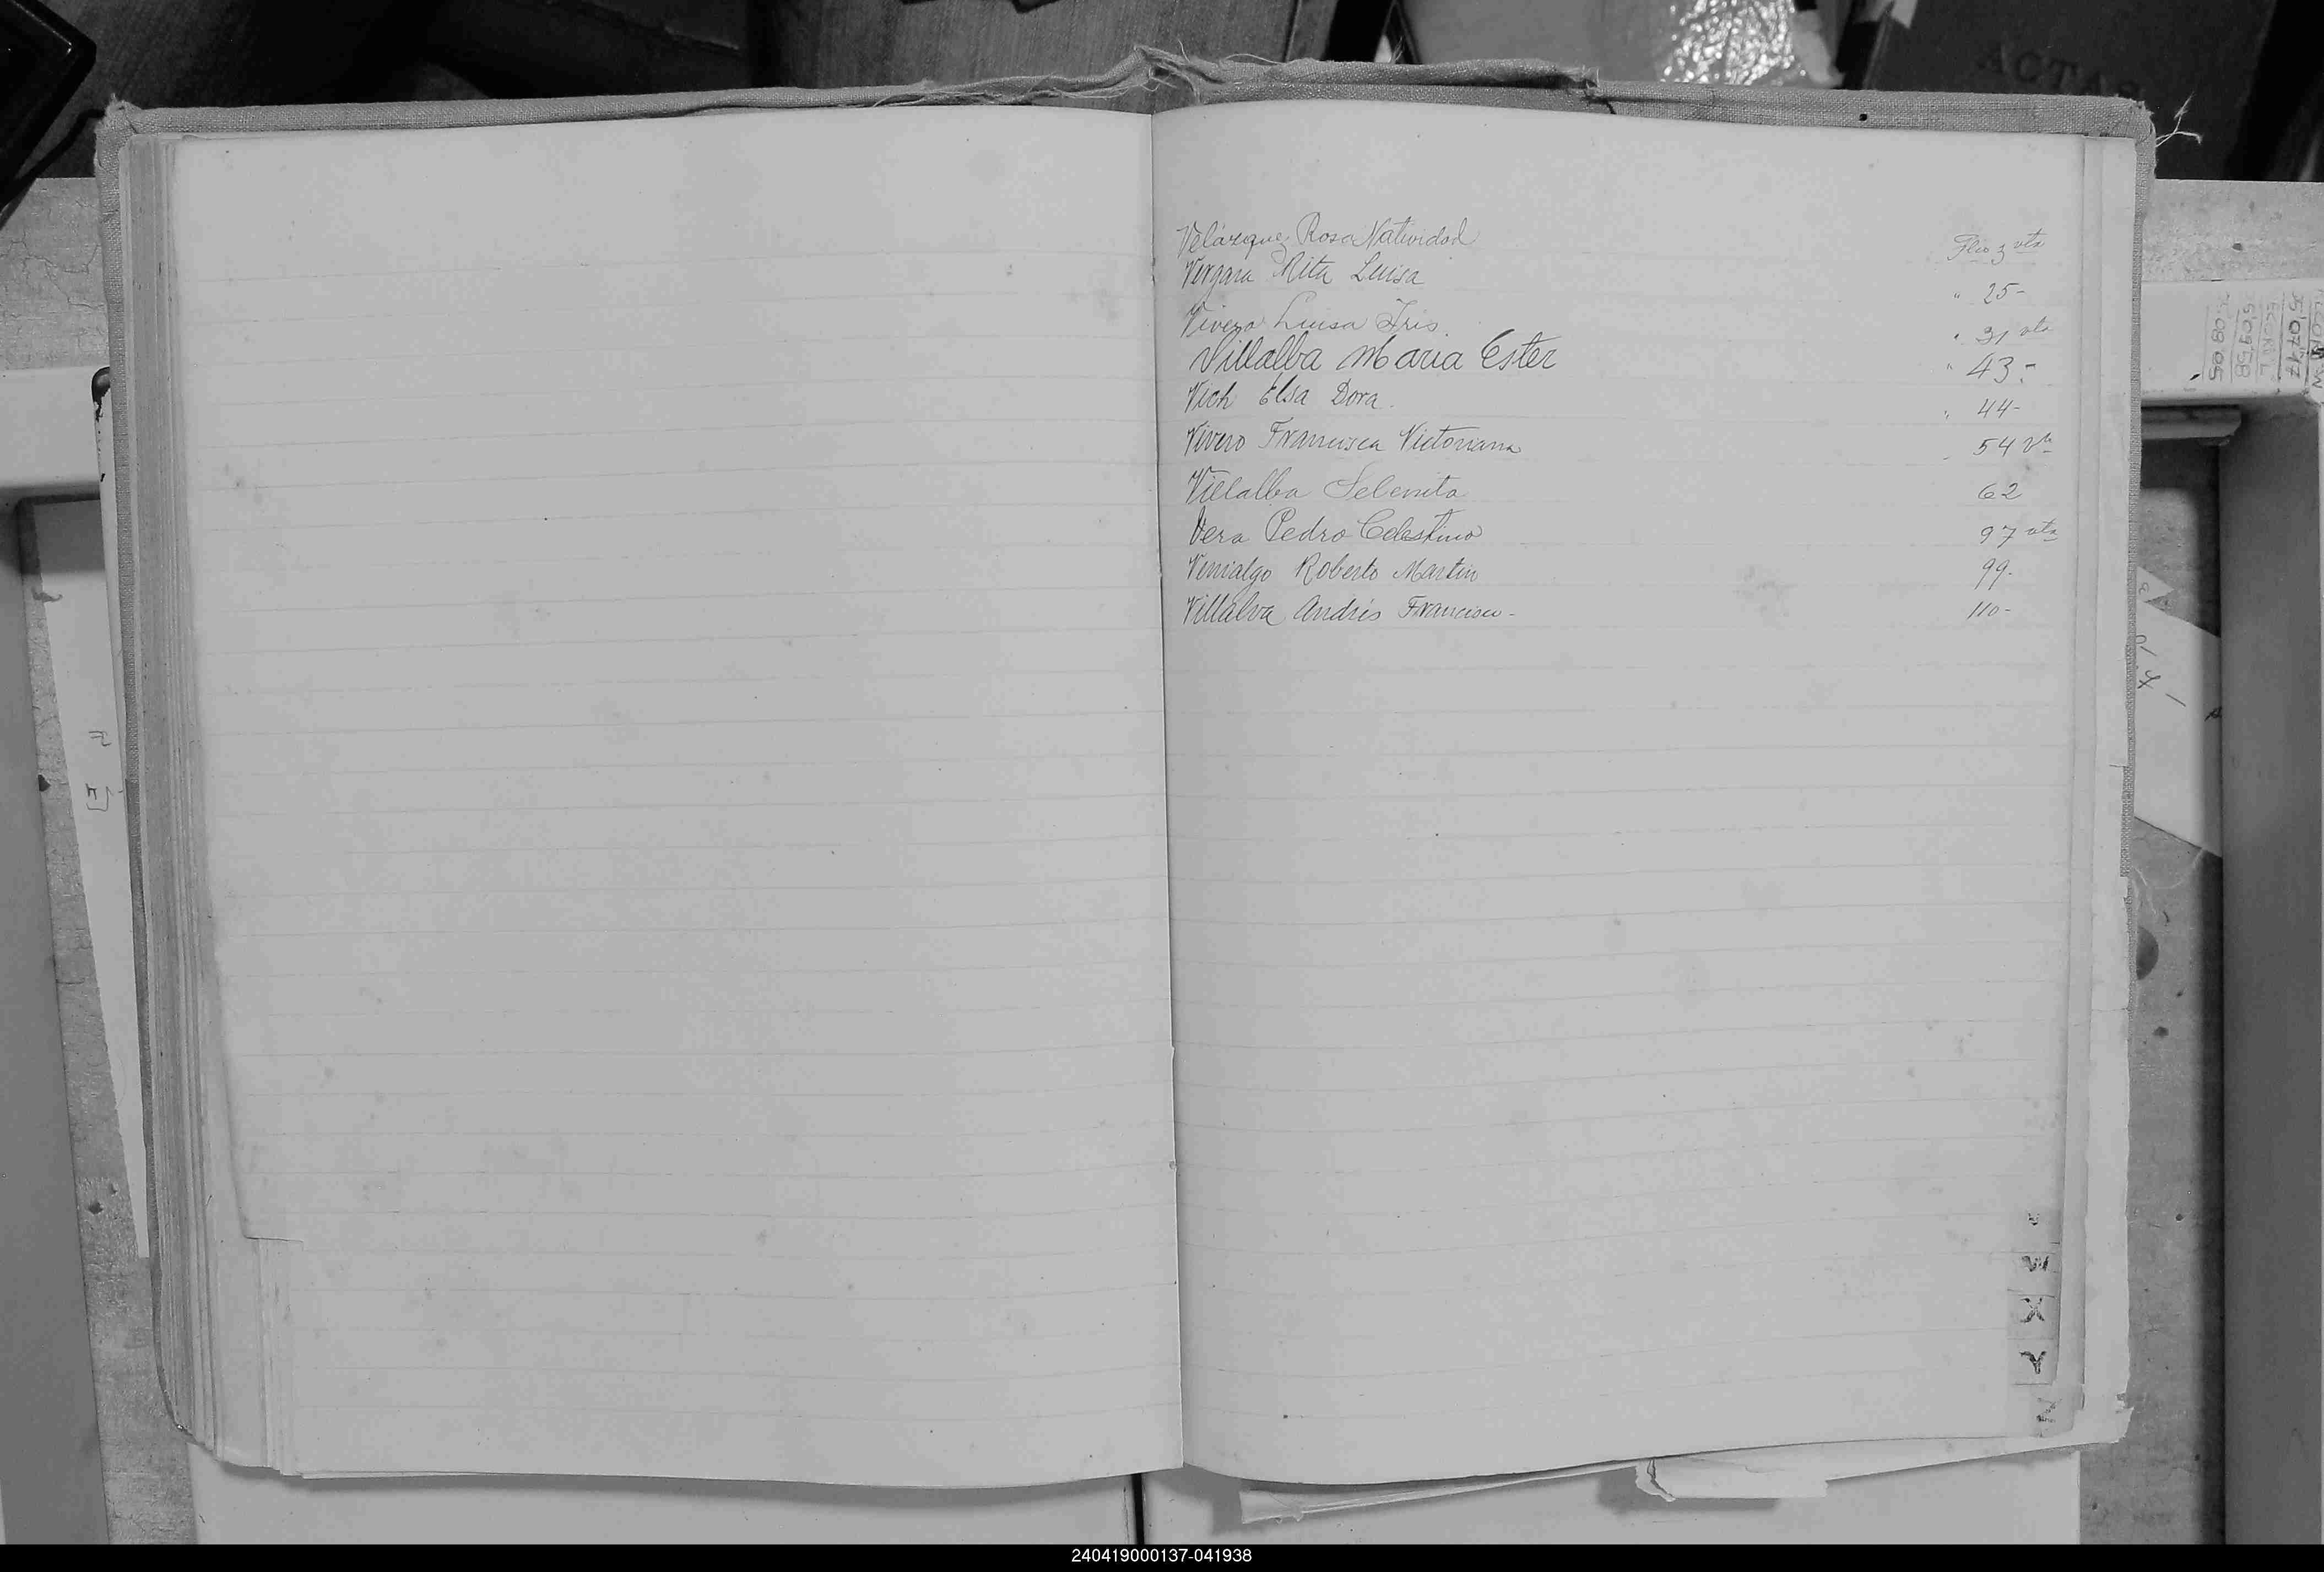 Velázquez Rosa Natividad Flio 3 vta
Vergara Rita Luisa " 25-
Vivero Luisa Iris. " 31 vta
Villalba Maria Ester " 43.-
Vich Elsa Dora. " 44-
Vivero Francisca Victoriana 54 vta
Villalba Selenita 62
Vera Pedro Celestino 97 vta
Venialgo Roberto Martin 99.
Villalva Andrés Francisco- 110-
W
X
Y
Z
ACTAS
240419000137-041938